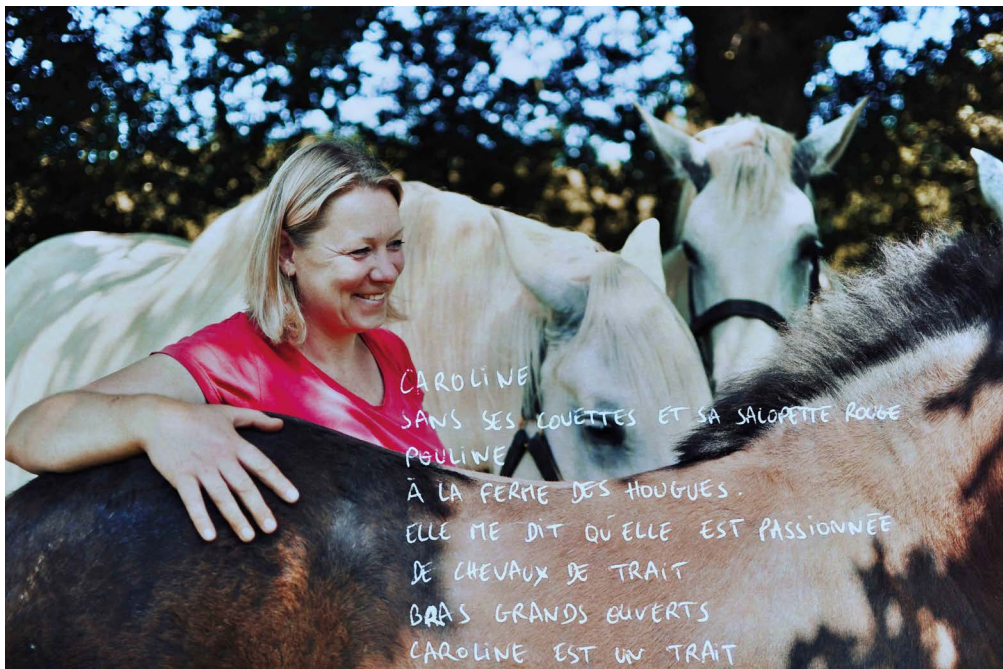 CAROLINE
SANS SES COUETTES ET SA SALOPETTE ROUGE
POULINE
À LA FERME DES HOUGUES.
ELLE ME DIT QU'ELLE EST PASSIONNÉE
DE CHEVAUX DE TRAIT
BRAS GRANDS OUVERTS
CAROLINE EST UN TRAIT